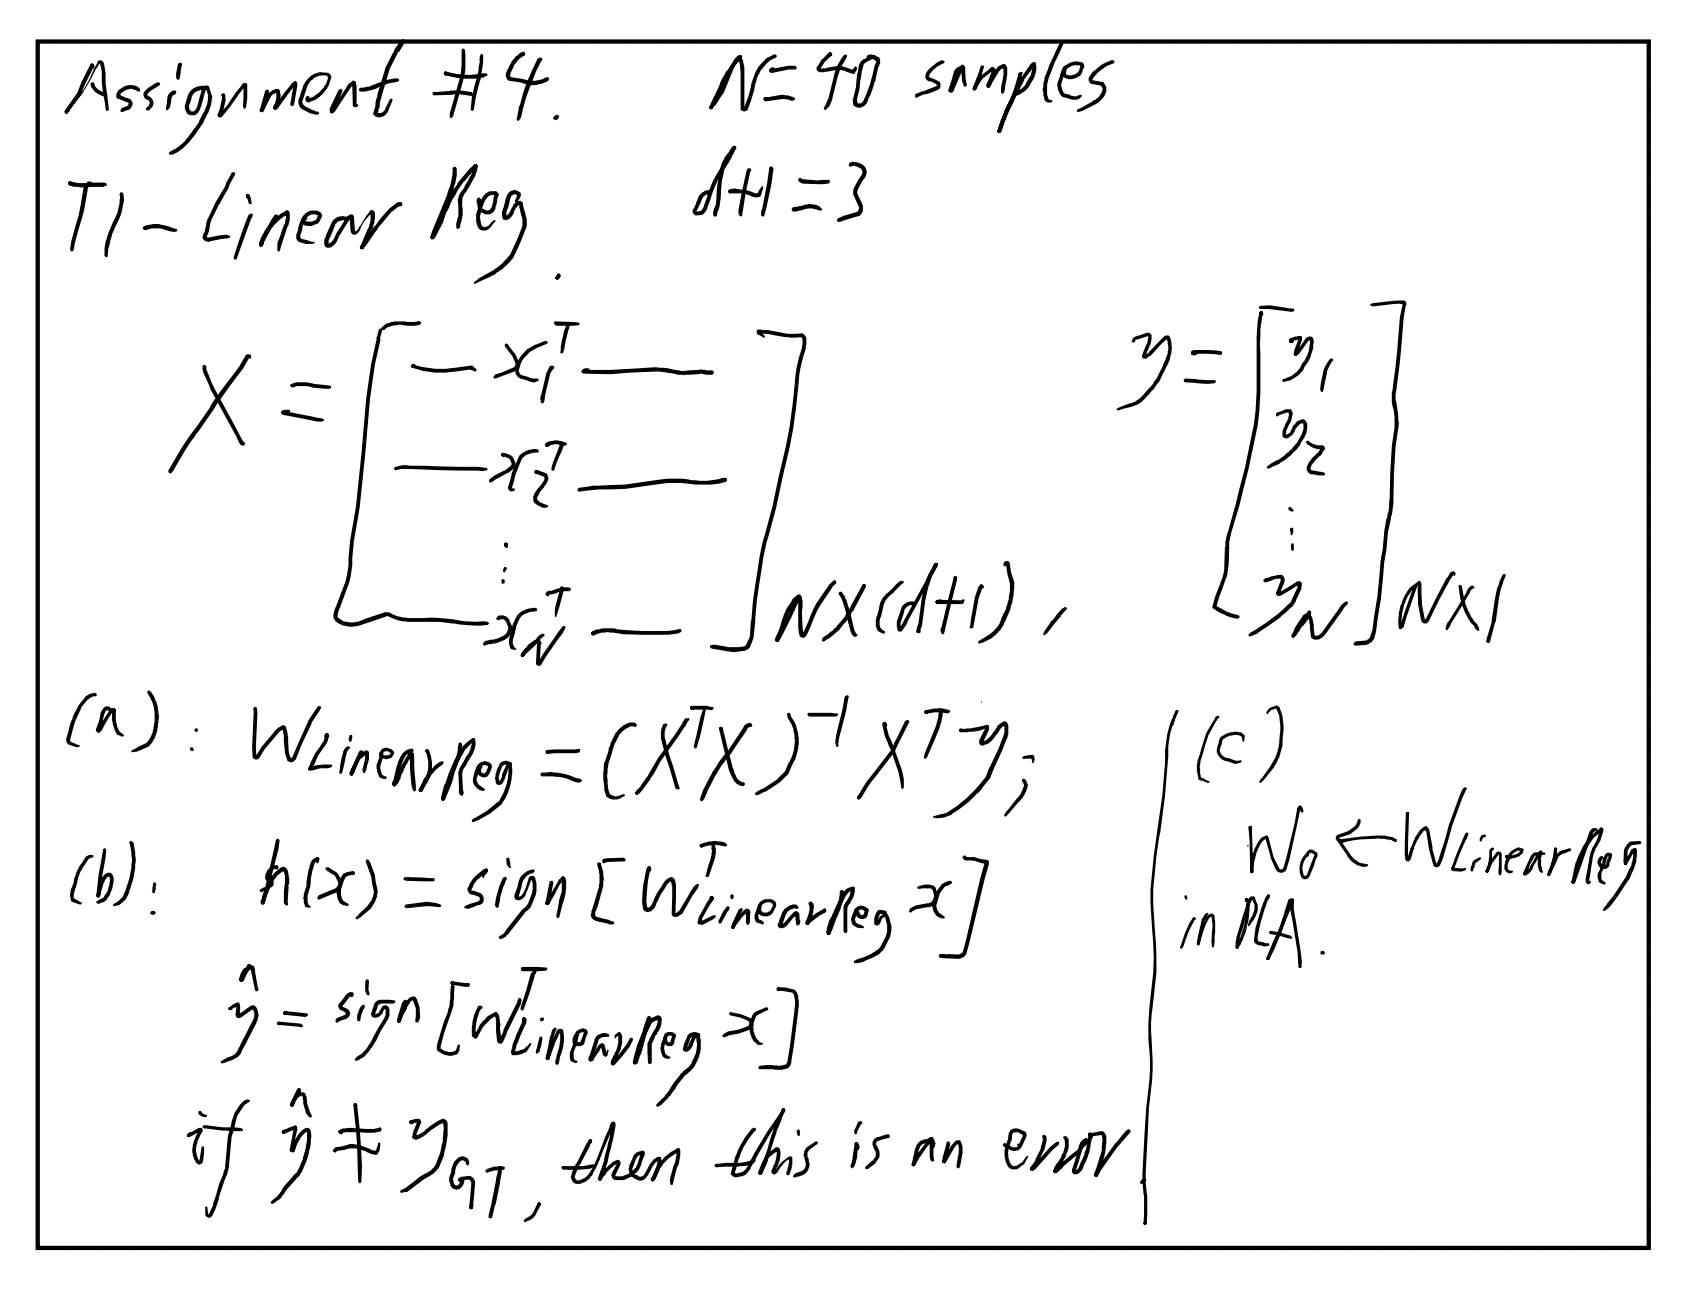 Assignment #4. N=40 samples
T1 - Linear Reg. d+1=3
X = [ — x₁ᵀ — 
— x₂ᵀ —
⋮
— x_Nᵀ — ] N×(d+1) ,
y = [ y₁
y₂
⋮
y_N ] N×1
(a): W_LinearReg = (XᵀX)⁻¹ Xᵀy;
(b): h(x) = sign [Wᵀ_LinearReg x]
ŷ = sign [Wᵀ_LinearReg x]
if ŷ ≠ y_GT, then this is an error
(c)
W₀ ← W_LinearReg
in PLA.